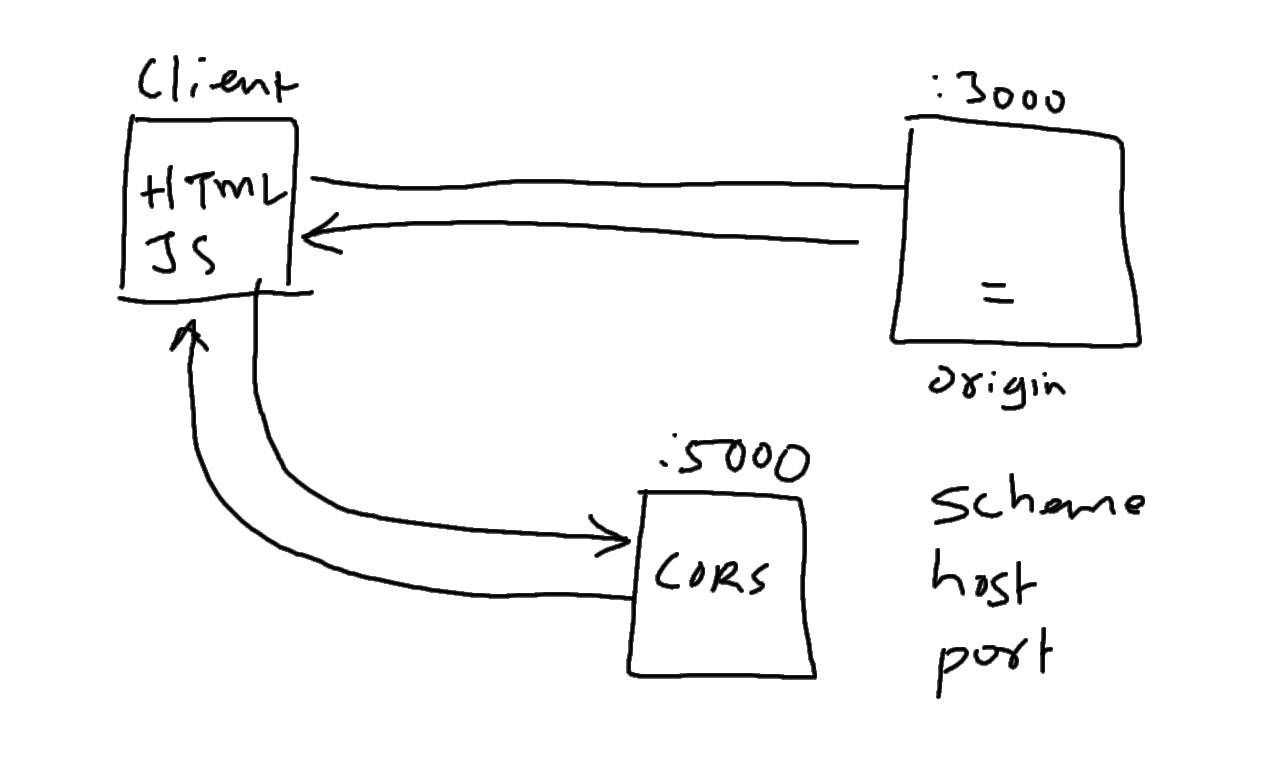 Client
HTML
JS
:3000
=
origin
:5000
CORS
scheme
host
port